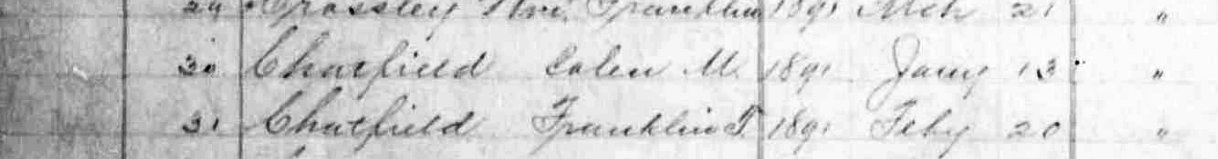 29 Crossley Wm. Franklin 1891 Mch 21 "
30 Chatfield Calen M. 1891 Jany 13 "
31 Chatfield Franklin T. 1891 Feby 20 "